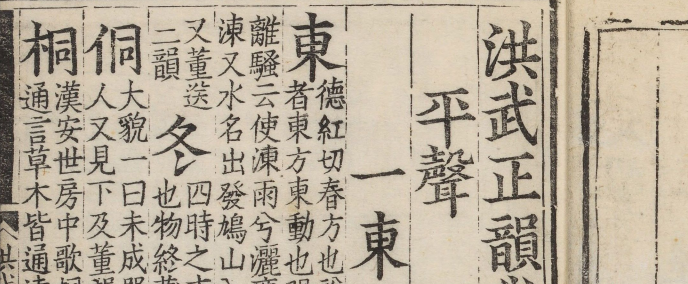 洪武正韻
平聲
一東
東
德紅切春方也
者東方東動也
離騷云使涷雨兮灑
涷又水名出發鳩山
又董送
二韻
冬
四時之
也物終
侗
大貌一曰未成
人又見下及董
桐
漢安世房中歌
通言草木皆通
洪